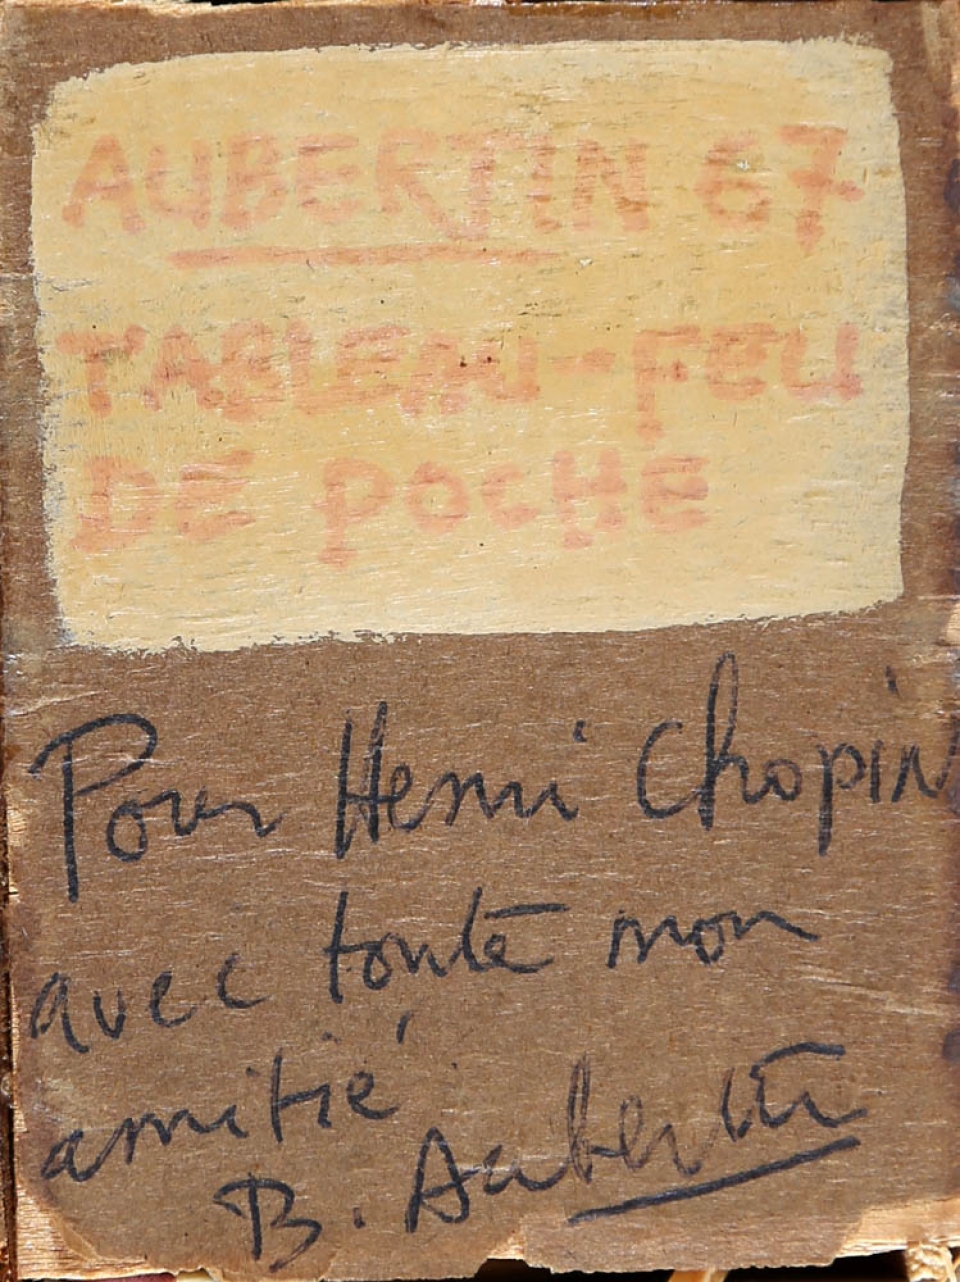 AUBERTIN 67
TABLEAU-FEU
DE POCHE
Pour Henri Chopin
avec toute mon
amitié
B. Aubertin